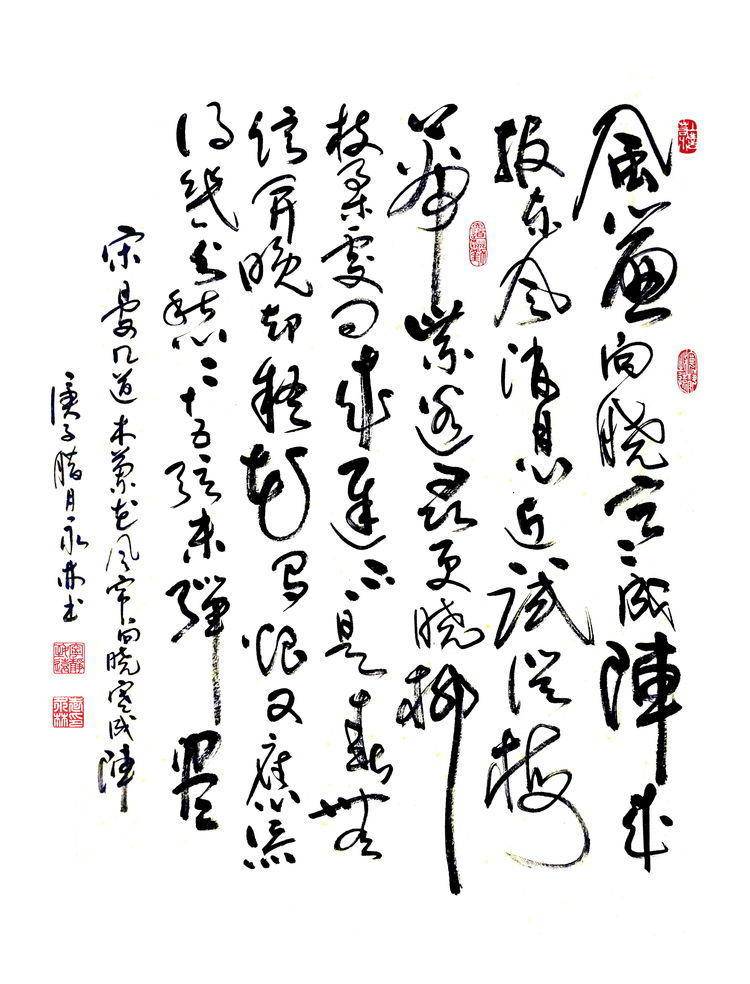 風簾向曉寒成陣來
報東風消息近試從梅
蒂紫邊尋更曉柳
枝柔處問來遲不是春無
信開晚却疑花有恨又應添
得幾分愁二十五弦未彈盡
宋晏几道木蘭花風帘向曉寒成陣
庚子腊月永林书
寧靜致遠